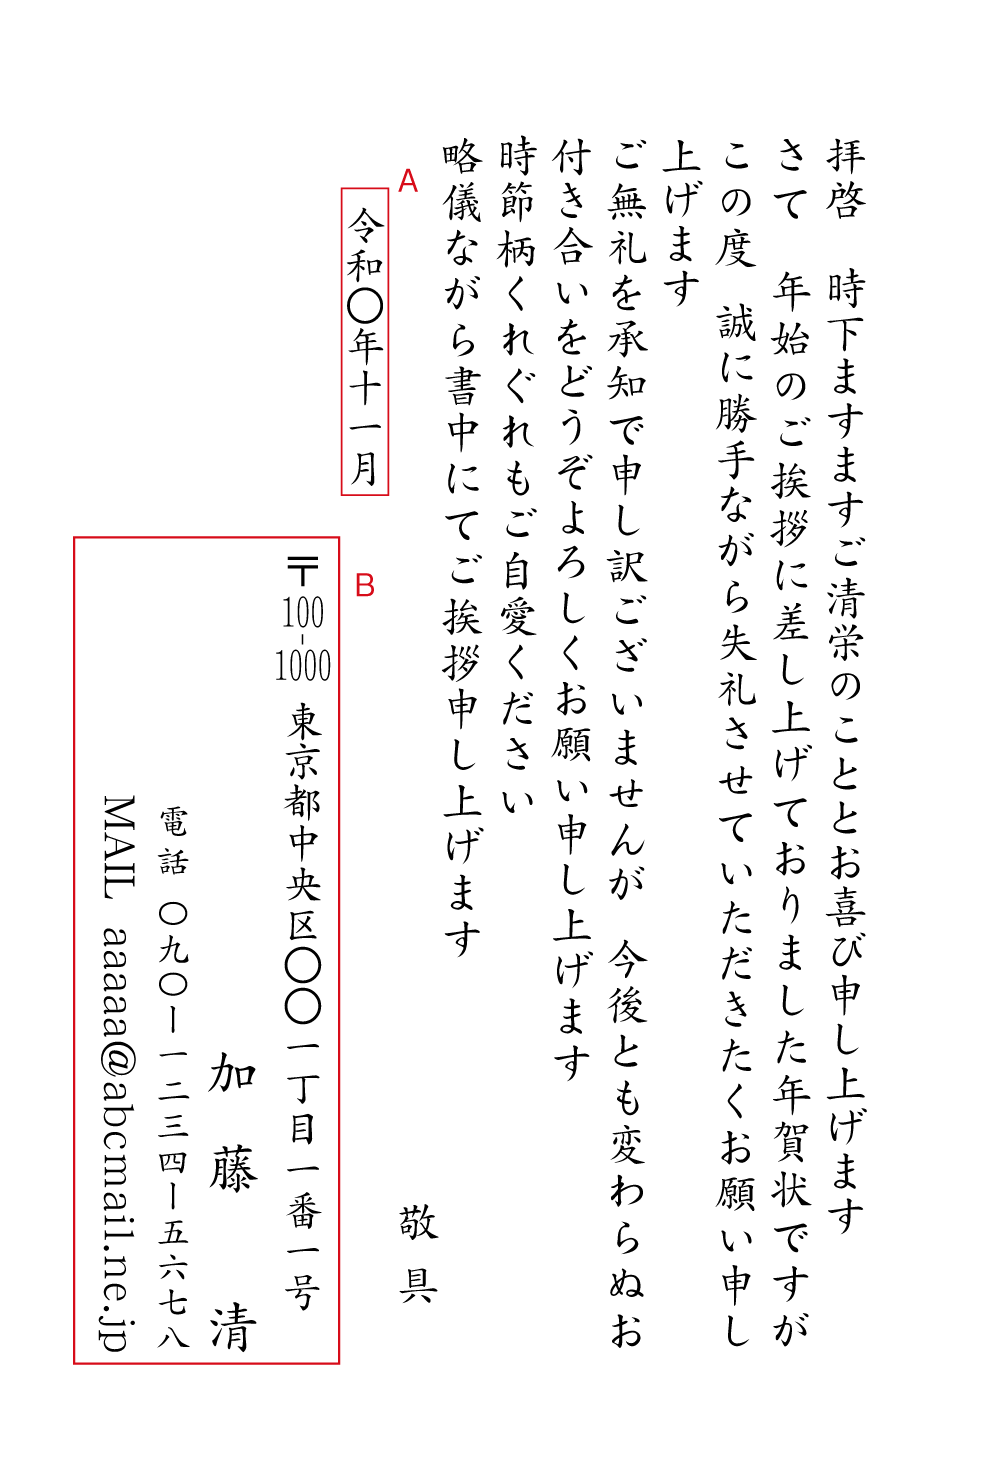 拝啓　時下ますますご清栄のこととお喜び申し上げます
さて　年始のご挨拶に差し上げておりました年賀状ですが
この度　誠に勝手ながら失礼させていただきたくお願い申し
上げます
ご無礼を承知で申し訳ございませんが　今後とも変わらぬお
付き合いをどうぞよろしくお願い申し上げます
時節柄くれぐれもご自愛ください
略儀ながら書中にてご挨拶申し上げます
敬具
A
令和〇年十一月
B
〒100-1000 東京都中央区〇〇一丁目一番一号
加藤　清
電話 〇九〇ー一二三四ー五六七八
MAIL aaaaa@abcmail.ne.jp